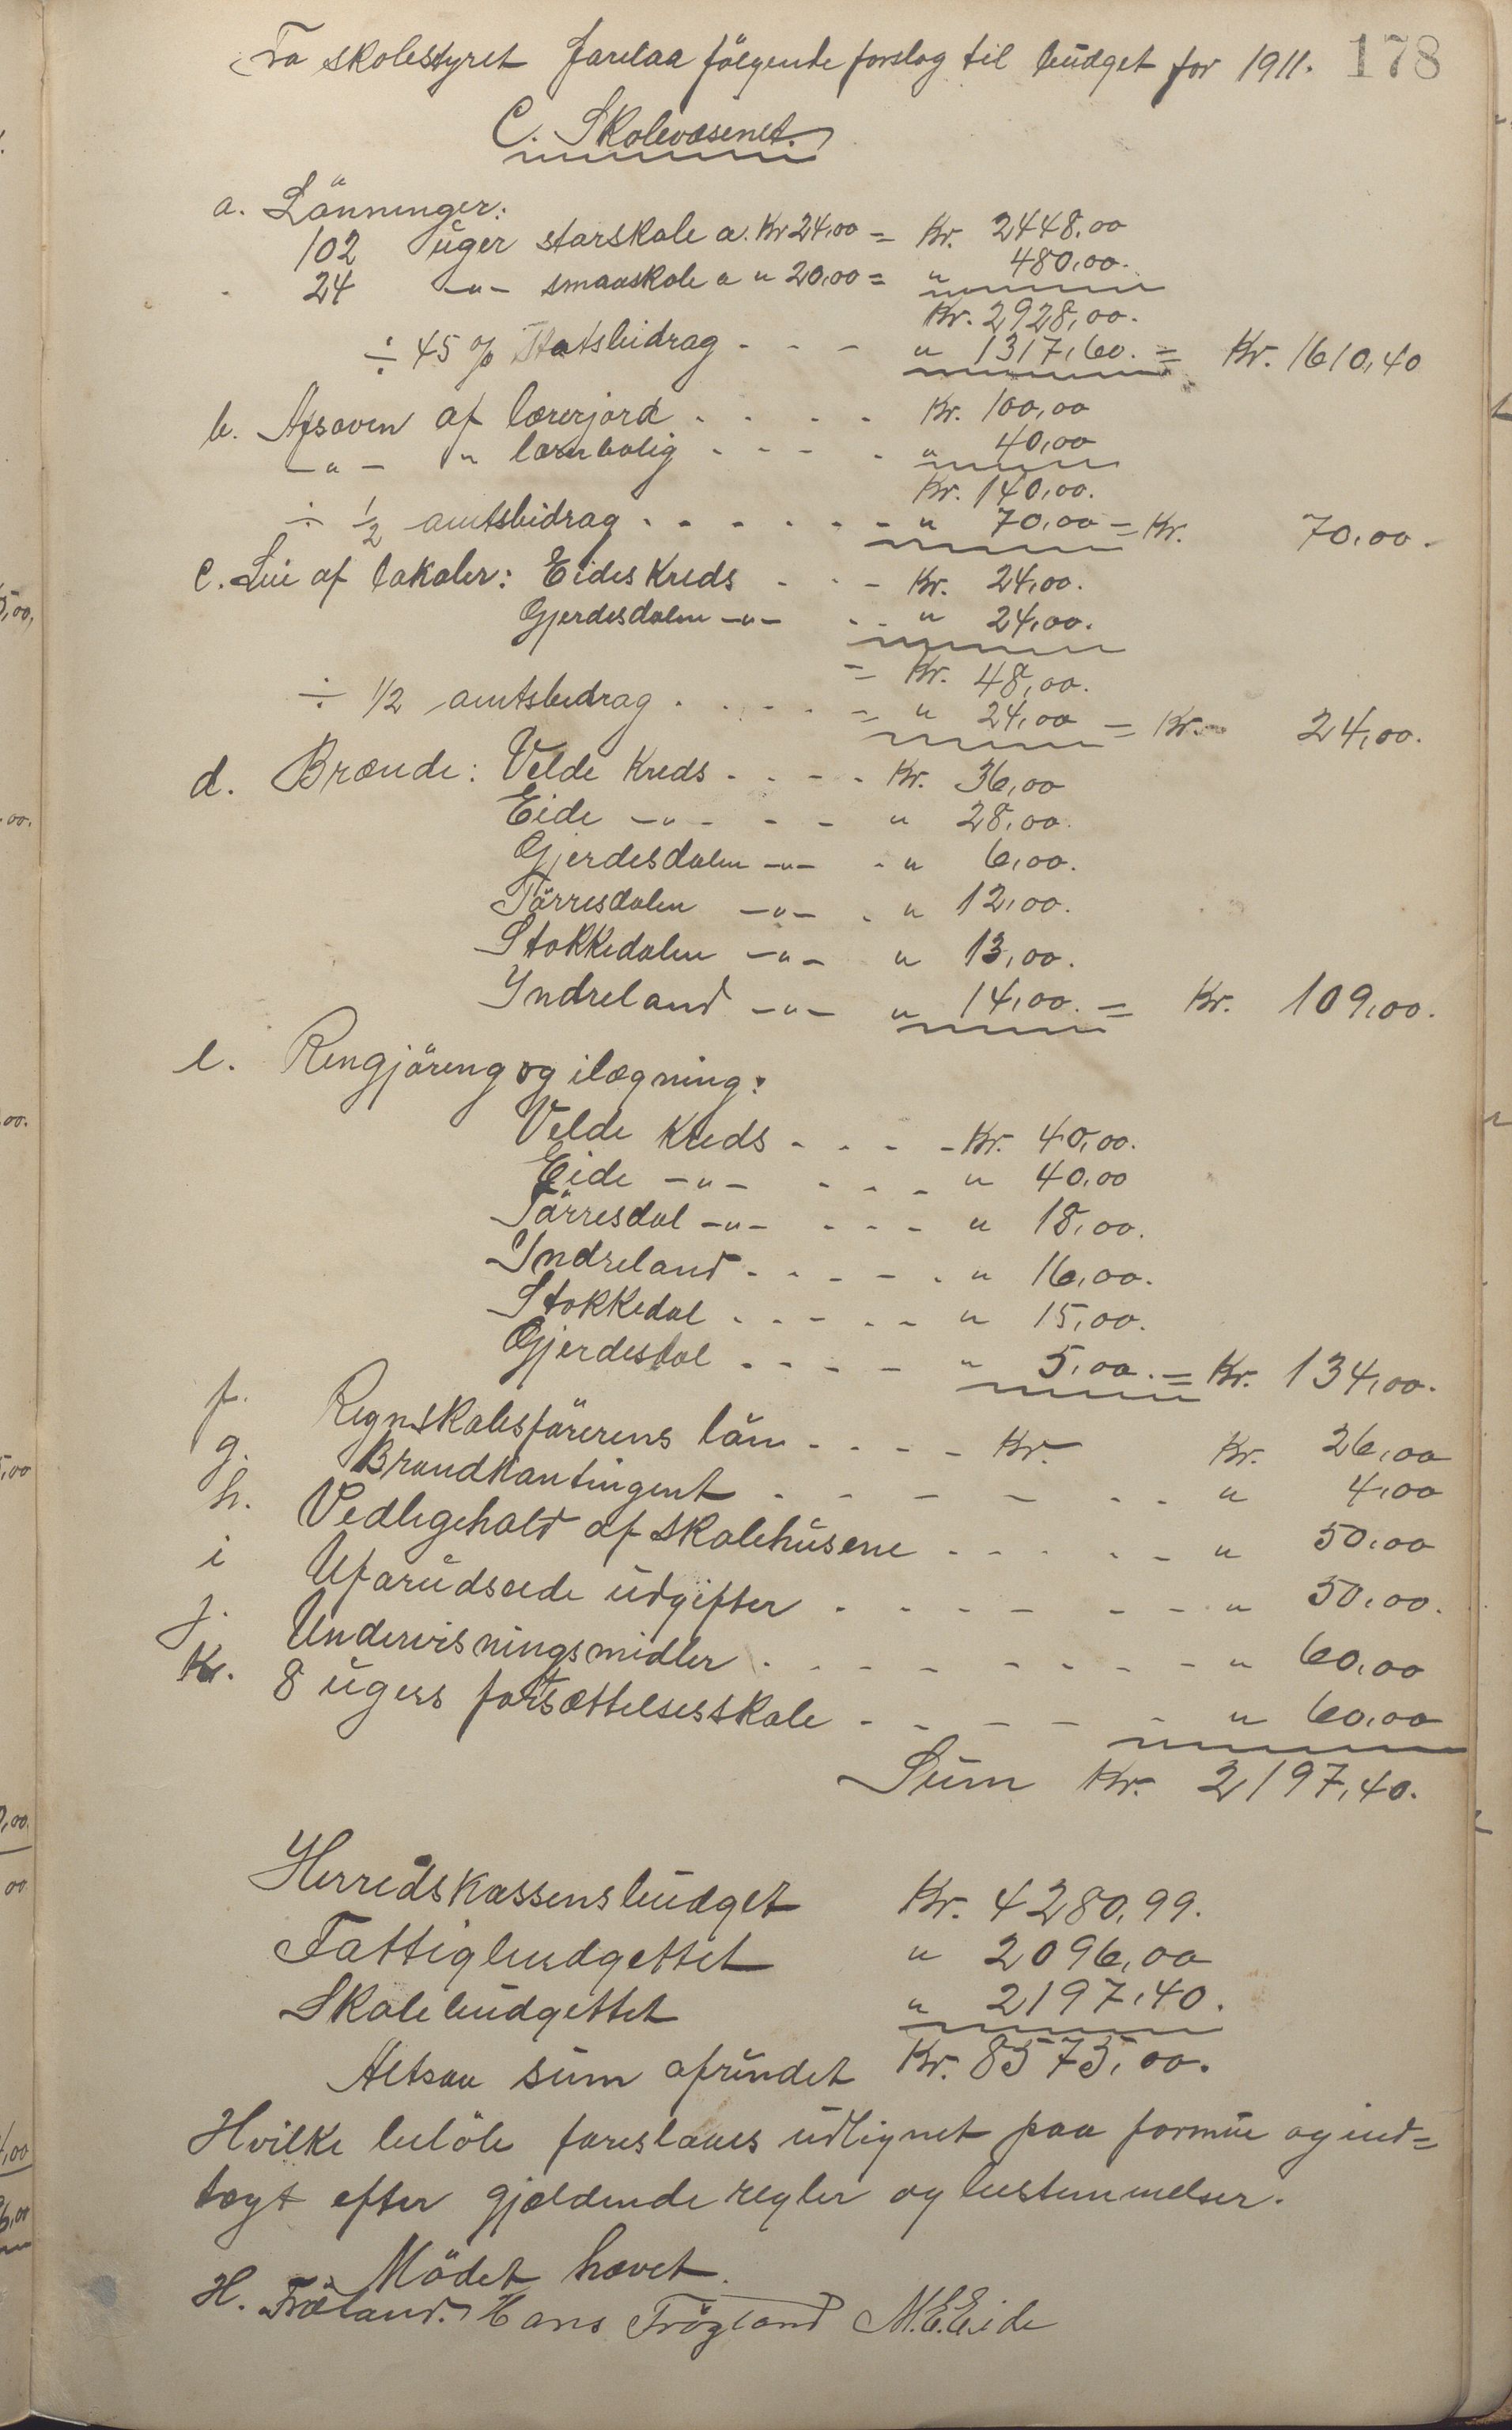 Fra skolestyret forelaa följende forslag til budget for 1911. 178
C. Skolevæsenet.
a. Lönninger:
102 uger storskole a. Kr 24,00 = Kr. 2448,00
24 -"- smaaskole a " 20,00 = " 480,00.
Kr. 2928,00.
÷ 45 % Statsbidrag - - - " 1317,60. = Kr. 1610,40
b. Afsavn af lærerjord - - - - Kr. 100,00
-"- " lærerbolig - - - - " 40,00
Kr. 140,00.
÷ 1/2 amtsbidrag - - - - - - " 70,00 = Kr. 70,00.
c. Leie af lokaler: Eides Kreds - - - Kr. 24,00.
Gjerdesdalen -"- - - " 24,00.
= Kr. 48,00.
÷ 1/2 amtsbidrag - - - - = " 24,00 = Kr. 24,00.
d. Brænde: Velde Kreds - - - - Kr. 36,00
Eide -"- - - " 28,00.
Gjerdesdalen -"- - " 6,00.
Törresdalen -"- - " 12,00.
Stokkedalen -"- " 13,00.
Yndreland -"- " 14,00. = Kr. 109,00.
e. Rengjöring og ilægning:
Velde Kreds - - - - Kr. 40,00.
Eide -"- - - - " 40,00
Törresdal -"- - - - " 18,00.
Yndreland - - - - - " 16,00.
Stokkedal - - - - - " 15,00.
Gjerdesdal - - - - " 5,00. = Kr. 134,00.
f. Regnskabsförerens lön - - - - Kr. Kr. 26,00
g. Brandkontingent - - - - - - " 4,00
h. Vedligehold af skolehusene - - - - - " 50,00
i Uforudseede udgifter - - - - - - " 50,00.
j. Undervisningsmidler - - - - - - - - " 60,00
k. 8 ugers fortsættelsesskole - - - - - " 60,00
Sum Kr. 2197,40.
Herredskassensbudget Kr. 4280,99.
Fattigbudgettet " 2096,00
Skolebudgettet " 2197,40.
Altsaa sum afrundet Kr. 8575,00.
Hvilke belöb foreslaaes udlignet paa formue og ind=
tægt efter gjældende regler og bestemmelser.
Mödet hævet.
H. Fröland. Hans Frögland M.E.Eide